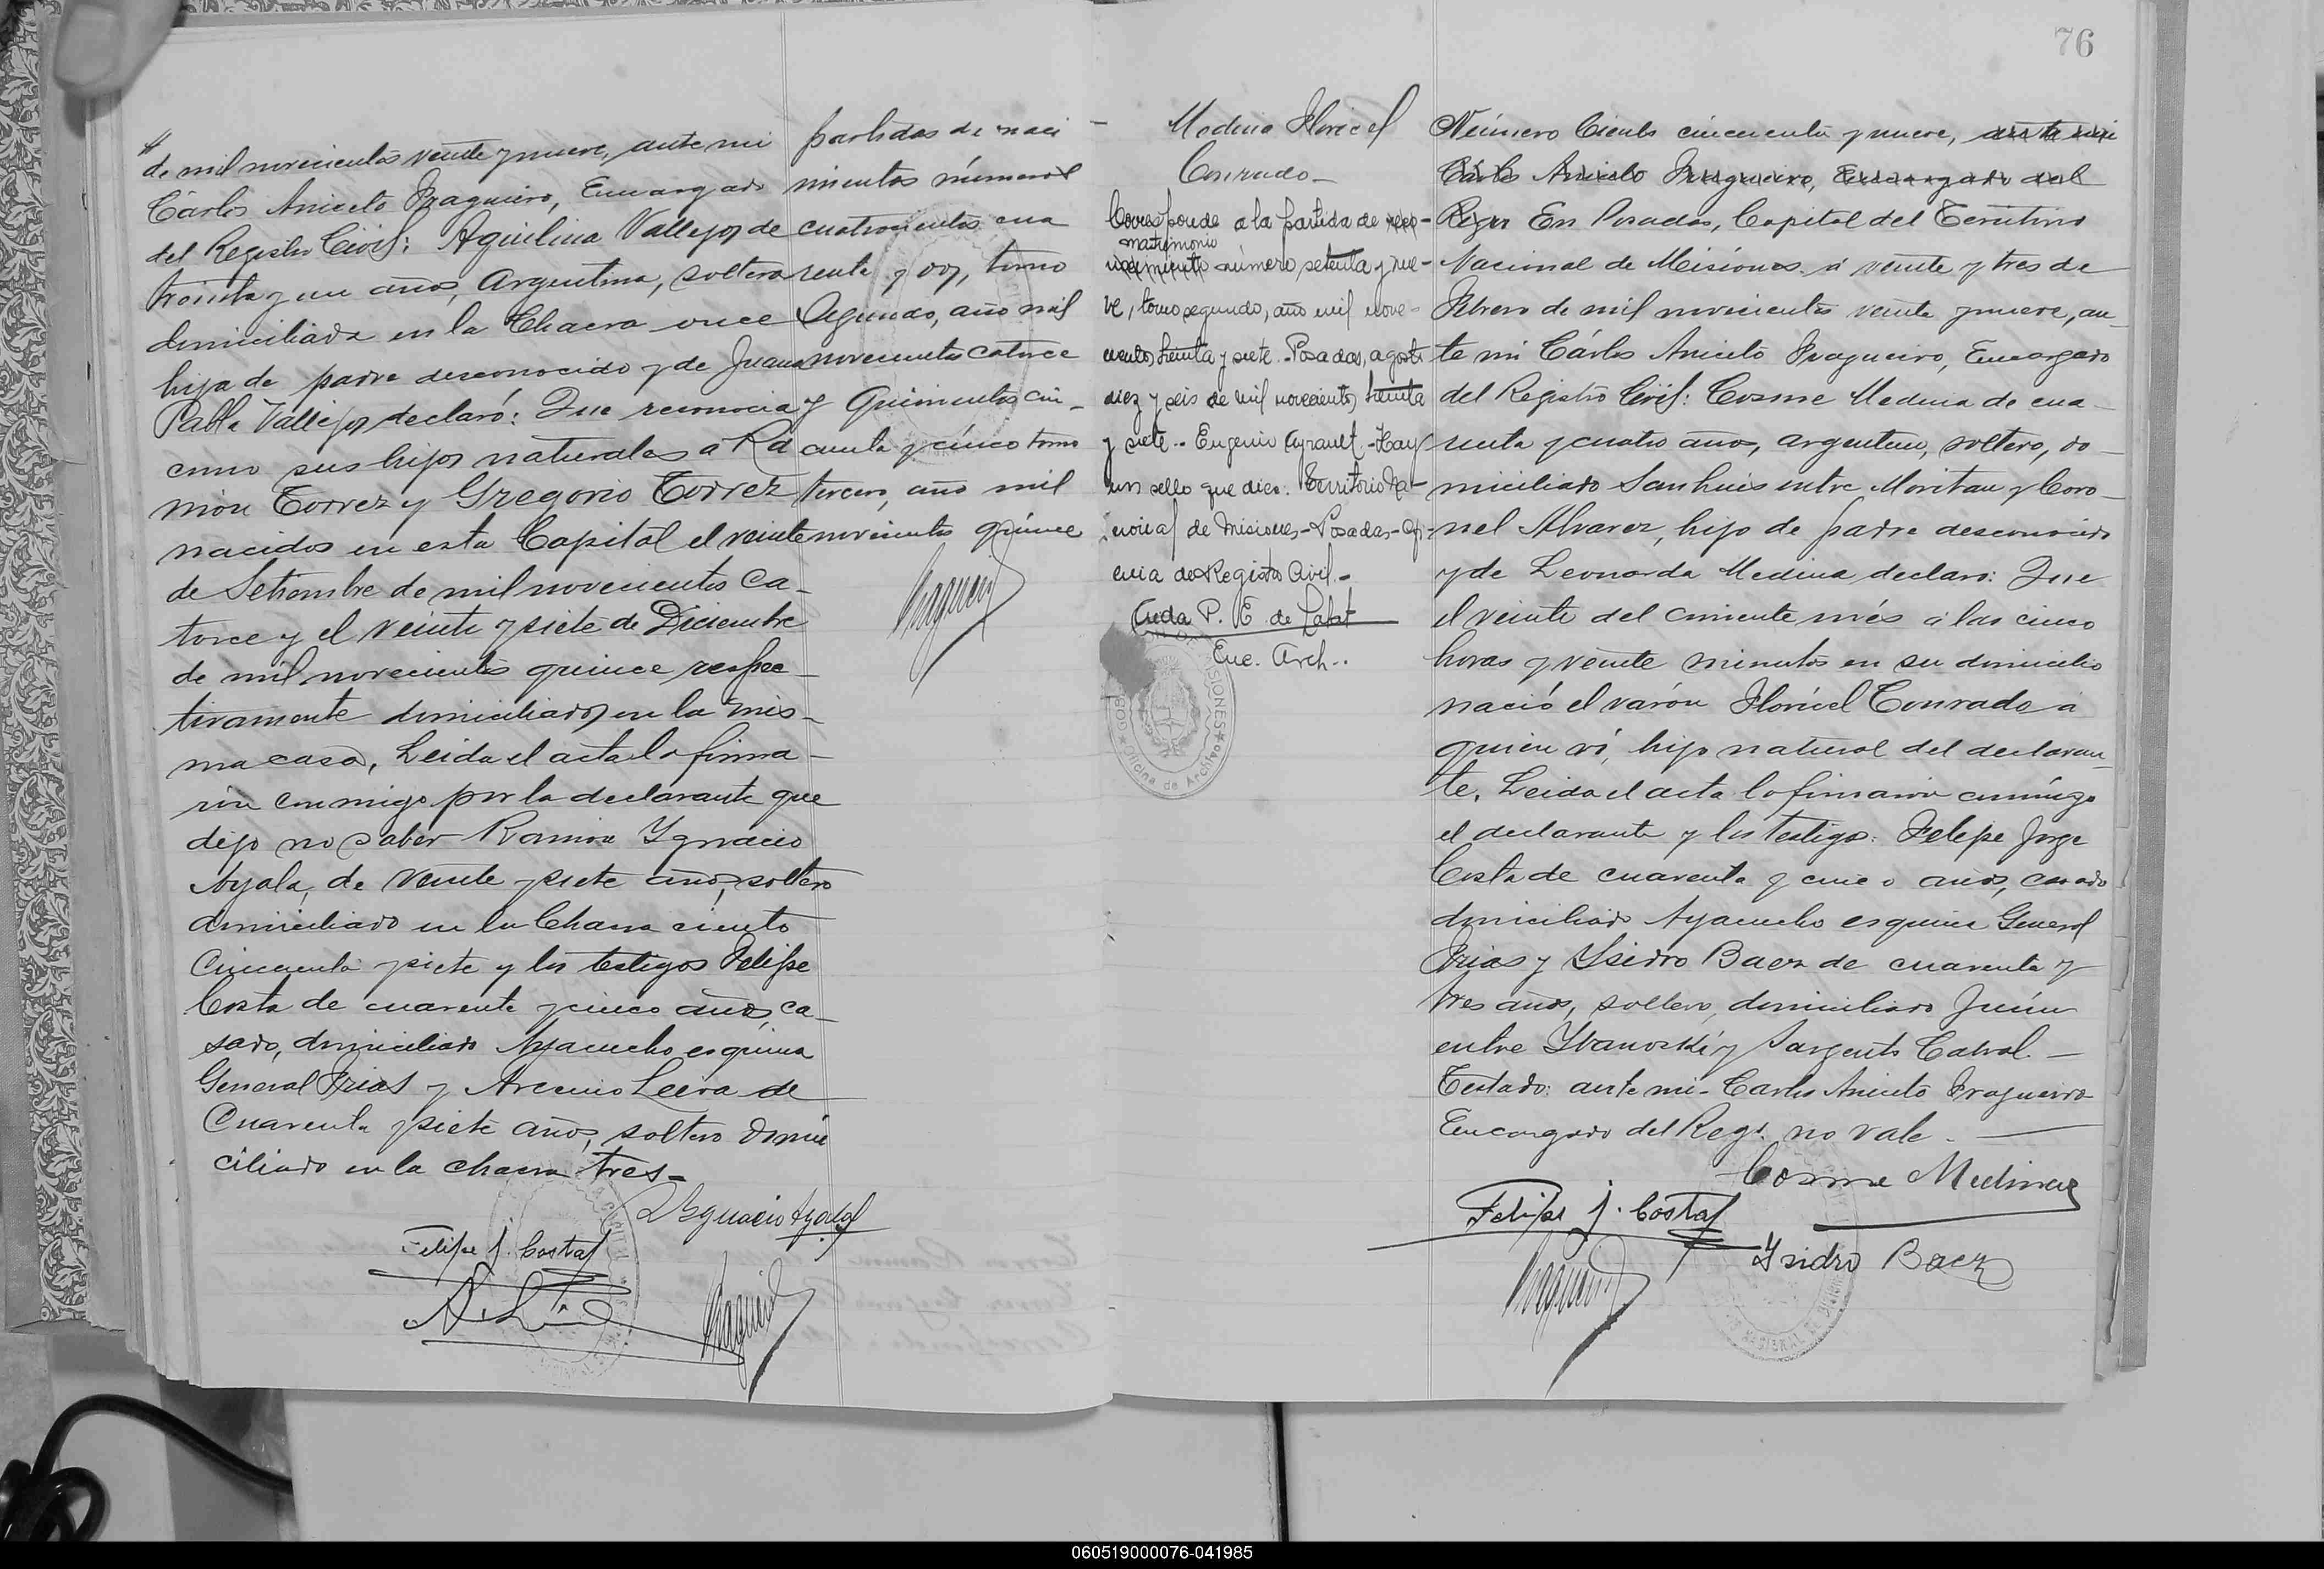 de mil novecientos veinte y nueve, ante mi
Cárlos Aniceto Fragueiro, Encargado
del Registro Civil: Aquilina Vallejos de
treinta y un años, Argentina, soltera
domiciliada en la Chacra once
hija de padre desconocido y de Juana
Pabla Vallejos declaró: Que reconocia
como sus hijos naturales a Ra
món Torrez y Gregorio Torrez
nacidos en esta Capital el veinte
de Setiembre de mil novecientos ca-
torce y el veinte y siete de Diciembre
de mil novecientos quince respec-
tivamente domiciliados en la mis-
ma casa, Leida el acta la firma-
rón conmigo por la declarante que
dijo no saber Ramón Ygnacio
Ayala, de veinte y siete años, soltero
domiciliado en la Chacra ciento
cincuenta y siete y los testigos Felipe
Costa de cuarenta y cinco años, ca-
sado, domiciliado Ayacucho esquina
General Frias y Arcenio Leiva de
cuarenta y siete años, soltero domi
ciliado en la chacra tres-
R Ygnacio Ayala
Felipe J. Costa
partidas de naci
mientos números
cuatrocientos cua
renta y dos, tomo
segundo, año mil
novecientos catorce
y quinientos cin-
cuenta y cinco tomo
tercero, año mil
novecientos quince
76
Medina Floricel
Conrado-
Corresponde a la partida de reco-
matrimonio
nocimiento número setenta y nue-
ve, tomo segundo, año mil nove-
cientos treinta y siete. Posadas, agosto
diez y seis de mil novecientos treinta
y siete.- Eugenio Ayrault.-Hay
un sello que dice. Territorio Na-
cional de Misiones-Posadas-Ofi-
cina de Registro Civil.-
Enc. Arch..
Oficina de Archivo
Número Ciento cincuenta y nueve, ante mi
Cárlos Aniceto Fragueiro, Encargado del
Regis En Posadas, Capital del Territorio
Nacional de Misiones á veinte y tres de
Febrero de mil novecientos veinte y nueve, an-
te mi Cárlos Aniceto Fragueiro, Encargado
del Registro Civil: Cosme Medina de cua-
renta y cuatro años, argentino, soltero, do-
miciliado San Luis entre Moritan y Coro-
nel Alvarez, hijo de padre desconocido
y de Leonarda Medina, declaró: Que
el veinte del corriente més á las cinco
horas y veinte minutos en su domicilio
nació el varón Floricel Conrado á
quien ví, hijo natural del declaran-
te. Leida el acta la firmaron conmigo
el declarante y los testigos: Felipe Jorge
Costa de cuarenta y cinco años, casado
domiciliado Ayacucho esquina General
Frias y Ysidro Baez de cuarenta y
tres años, soltero, domiciliado Junín
entre Ybanoski y Sargento Cabral.-
Testado: ante mi-Carlos Aniceto Fragueiro
Encargado del Regs. no vale.-
Cosme Medina
Felipe J. Costa
Ysidro Baez
060519000076-041985